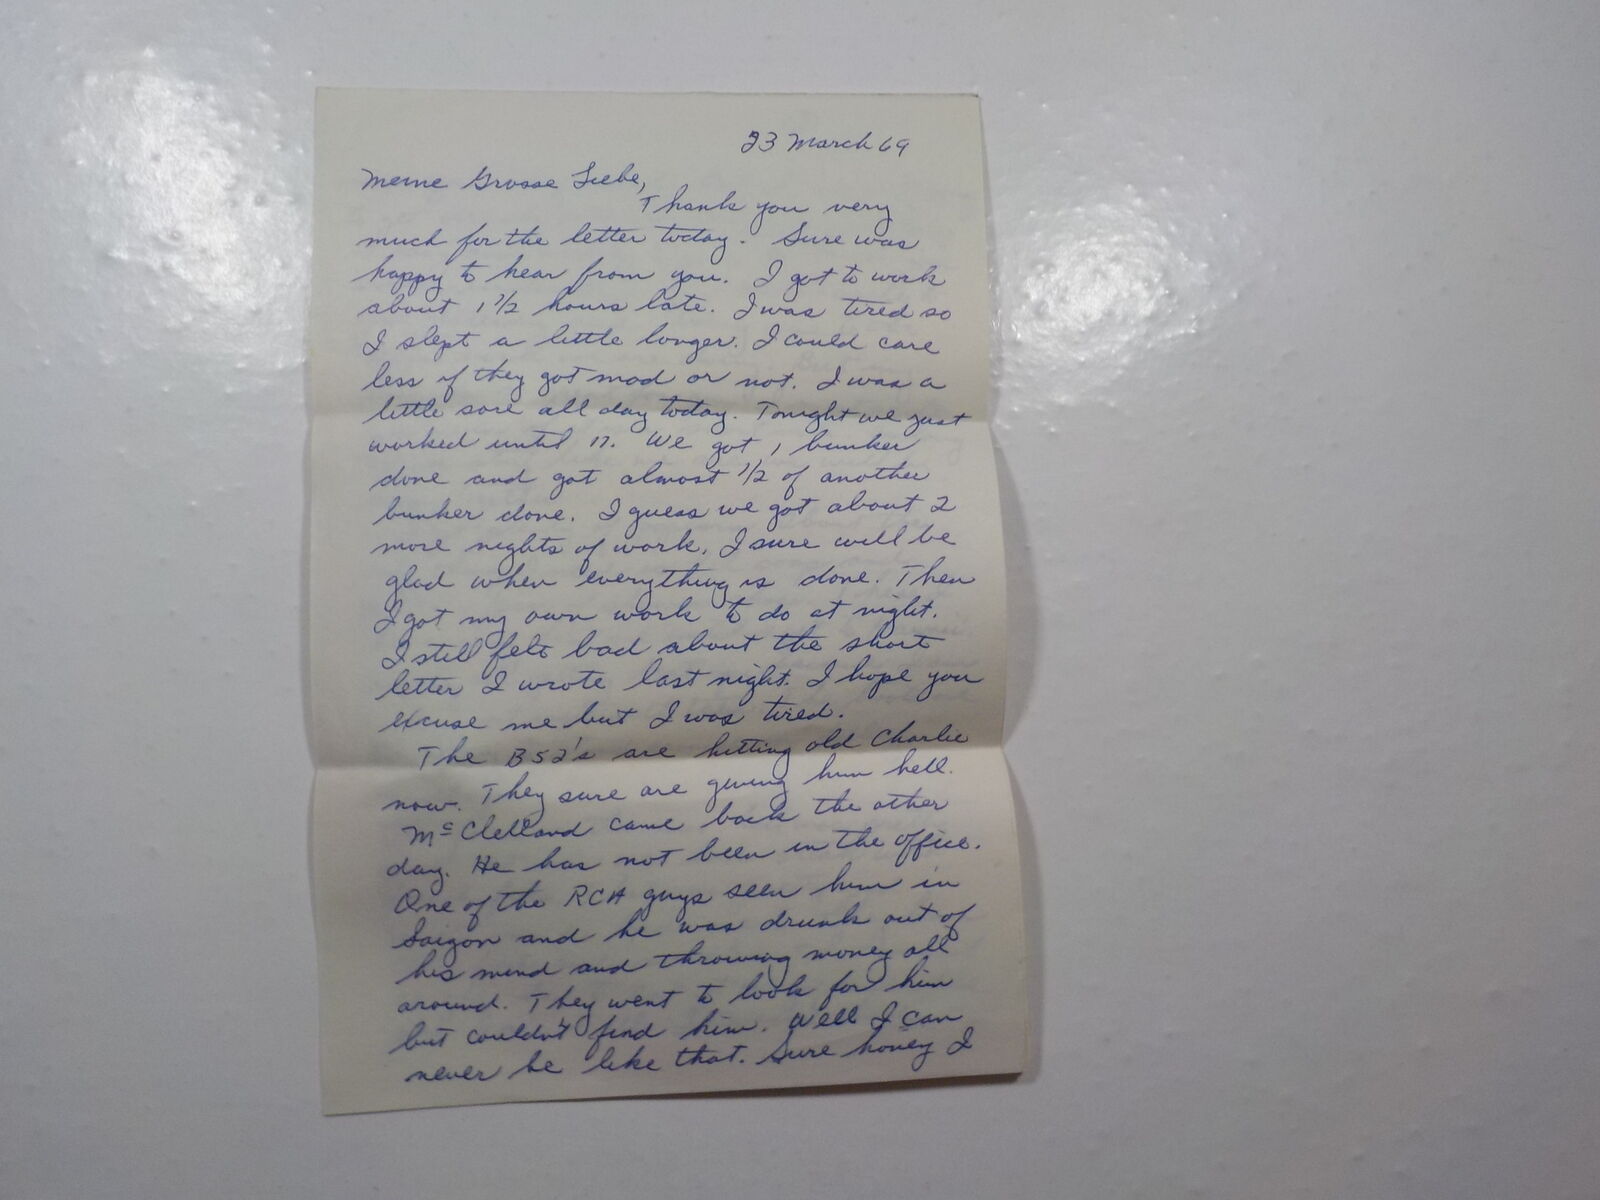 23 March 69
Meine Grosse Liebe,
Thank you very
much for the letter today. Sure was
happy to hear from you. I got to work
about 1 1/2 hours late. I was tired so
I slept a little longer. I could care
less if they got mad or not. I was a
little sore all day today. Tonight we just
worked until 11. We got 1 bunker
done and got almost 1/2 of another
bunker done. I guess we got about 2
more nights of work. I sure will be
glad when everything is done. Then
I got my own work to do at night.
I still felt bad about the short
letter I wrote last night. I hope you
excuse me but I was tired.
The B52's are hitting old Charlie
now. They sure are giving him hell.
McClelland came back the other
day. He has not been in the office.
One of the RCA guys seen him in
Saigon and he was drunk out of
his mind and throwing money all
around. They went to look for him
but couldn't find him. Well I can
never be like that. Sure honey I